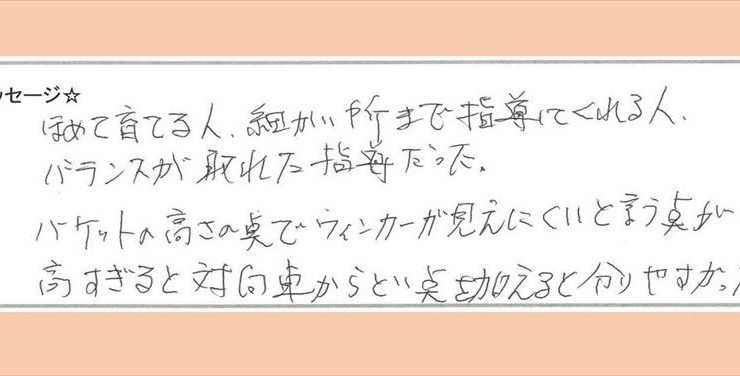 ッセージ☆
ほめて育てる人、細かい所まで指導してくれる人、
バランスが取れた指導だった。
バケットの高さの点でウィンカーが見えにくいと言う点が
高すぎると対向車からという点も加えると分りやすかった